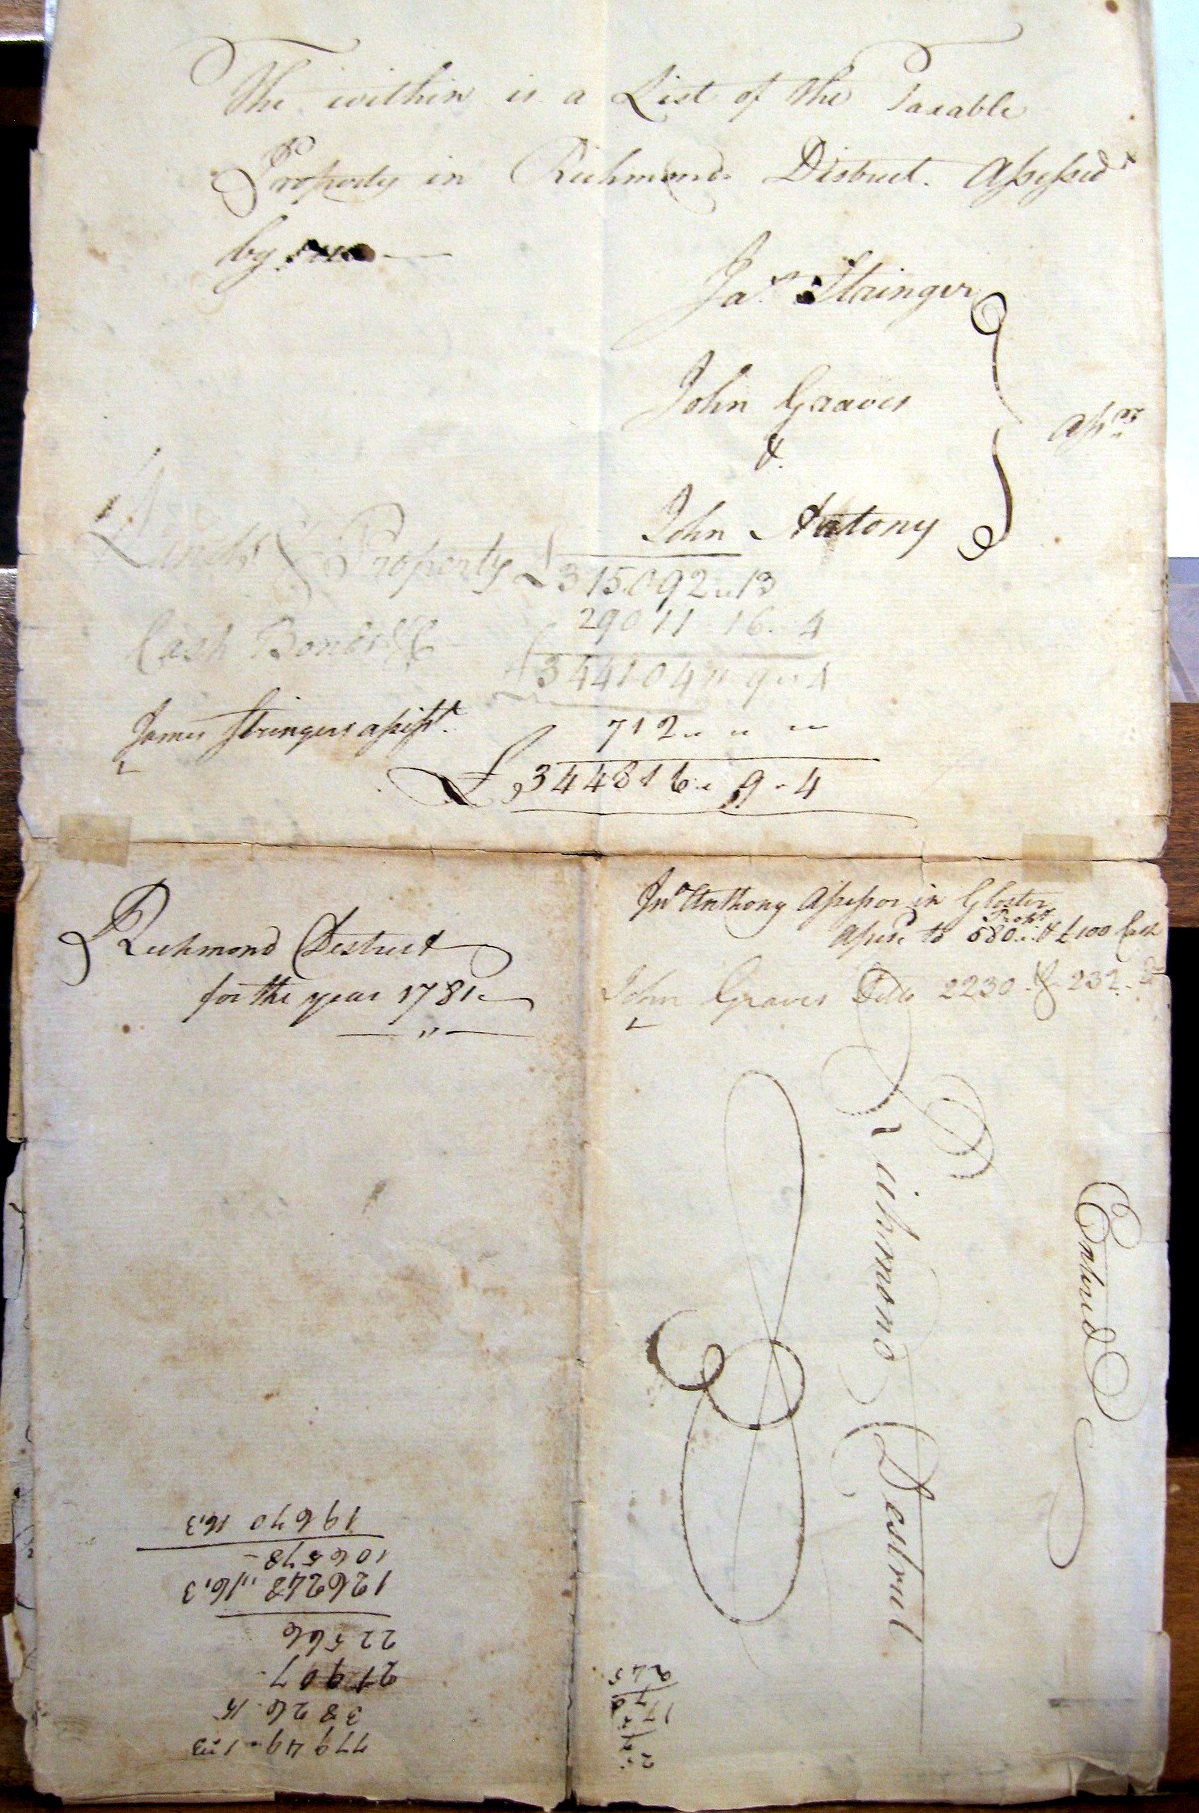 The within is a List of the Taxable
Property in Richmond District. Assessed
by
Jas. Stringer
John Graves
&
John Antony
Assrs
Lands & Property £315092 " 13
Cash Bonds &c 29011 " 16 " 4
£344104 " 9 " 4
James Stringers assest. 712 " " "
£344816 " 9 " 4
Richmond District
for the year 1781
Jno Anthony Assessor in Gloster
Propty
Assesd to 580 " & £100 Cash
John Graves Ditto 2230 & 232 Do
Richmond Destrict
Entered
77949 " 1 " 3
3826 " 15
21907
22566
126248 " 16 " 3
106578 -
19670 16 " 3